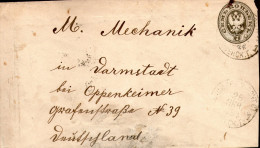 M. Mechanik
in Darmstadt
bei Oppenheimer
Grafenstraße № 39
Deutschland